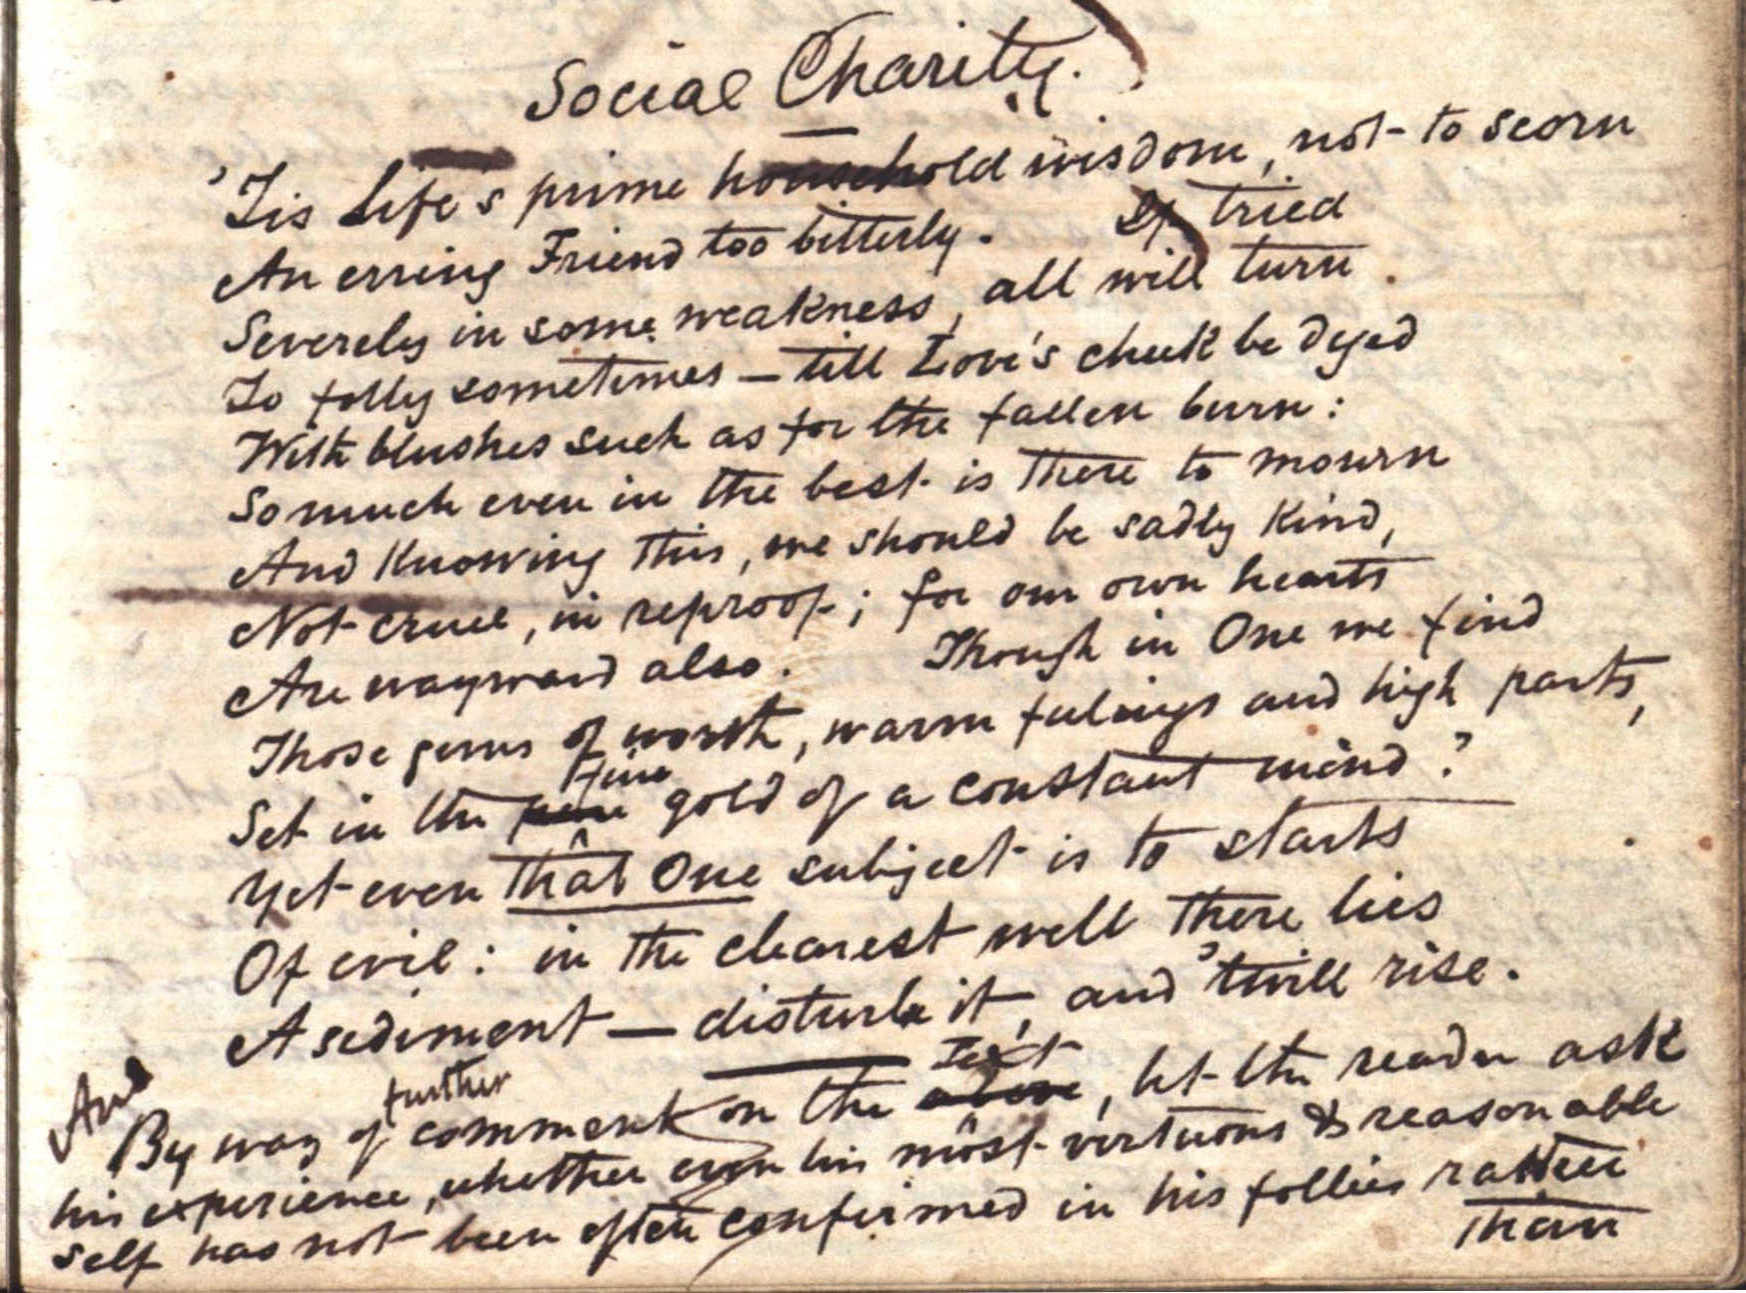 Social Charity.
'Tis Life's prime household wisdom, not to scorn
An erring Friend too bitterly. If tried
Severely in some weakness, all will turn
To folly sometimes — till Love's cheek be dyed
With blushes such as for the fallen burn:
So much even in the best is there to mourn
And knowing this, we should be sadly kind,
Not cruel, in reproof; for our own hearts
Are wayward also. Though in One we find
Those gems of worth, warm feelings and high parts,
fine
Set in the pure gold of a constant mind?
Yet even that One subject is to starts
Of evil: in the clearest well there lies
A sediment — disturb it, and 'twill rise.
And further Text
By way of comment on the above, let the reader ask
his experience, whether even his most virtuous & reasonable
self has not been often confirmed in his follies rather
than